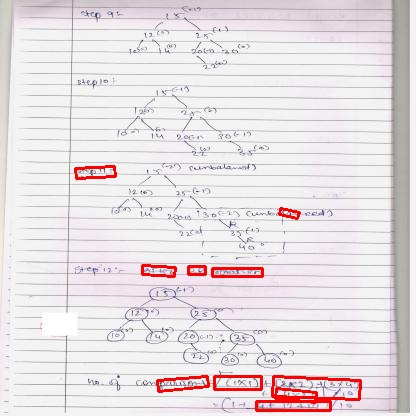 Step 9:-
15(-1)
12(0) 25(-1)
10(0) 14(0) 20(-1) 30(0)
22(0)
Step 10:-
15(-1)
12(0) 25(0)
10(0) 14 20(-1) 30(-1)
22(0) 35(0)
Step 11:-
15(-2) (unbalanced)
12(0) 25(-1)
10(0) 14(0) 20(-1) 30(-2) (unbalanced)
22(0) R 35(-1)
R
40(0)
Step 12:- After
15(-1)
12(0) 25(0)
10(0) 14(0) 20(-1) 35(0)
22(0) 30(0) 40(0)
no. of comparisons = (1x1) + (2x2) + (3x4)